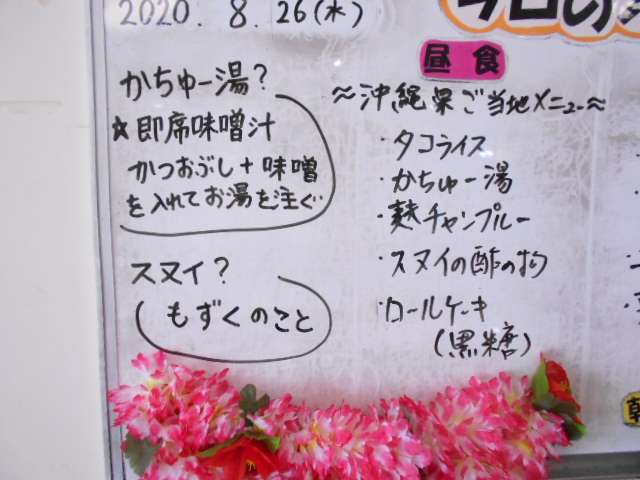 2020. 8. 26(水)
今日の
昼食
かちゅー湯?
☆即席味噌汁
かつおぶし+味噌
を入れてお湯を注ぐ
スヌイ?
もずくのこと
~沖縄県ご当地メニュー~
・タコライス
・かちゅー湯
・麩チャンプルー
・スヌイの酢の物
・ロールケーキ
(黒糖)